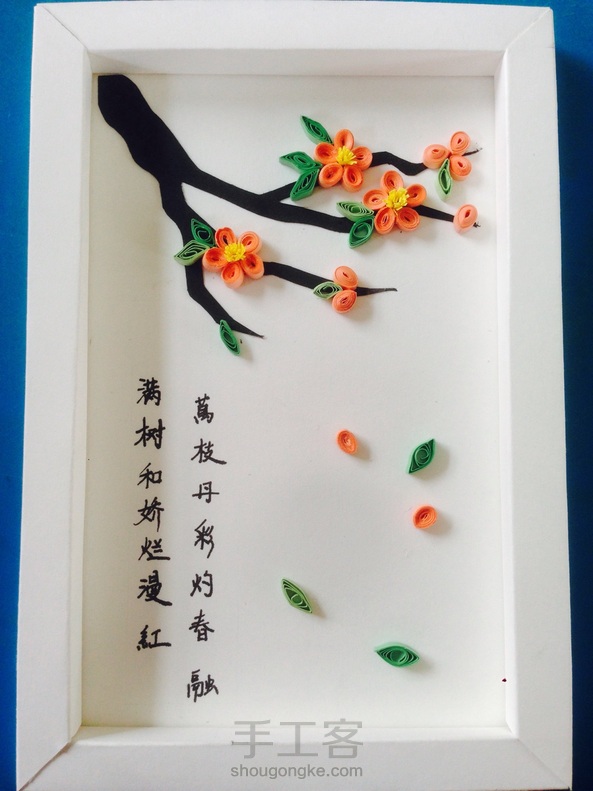 满树和娇烂漫红
萬枝丹彩灼春融
手工客
shougongke.com